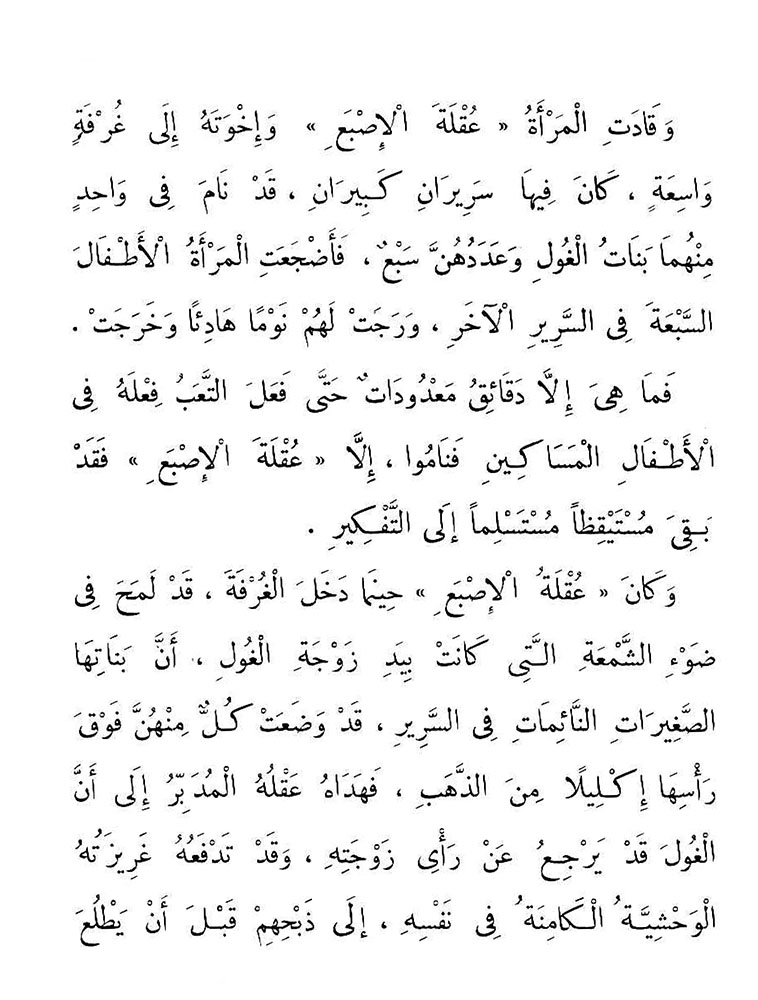 وَقَادَتِ الْمَرْأَةُ « عُقْلَةَ الْإِصْبَعِ » وَإِخْوَتَهُ إِلَى غُرْفَةٍ
وَاسِعَةٍ ، كَانَ فِيهَا سَرِيرَانِ كَبِيرَانِ ، قَدْ نَامَ فِى وَاحِدٍ
مِنْهُمَا بَنَاتُ الْغُولِ وَعَدَدُهُنَّ سَبْعٌ ، فَأَضْجَعَتِ الْمَرْأَةُ الْأَطْفَالَ
السَّبْعَةَ فِى السَّرِيرِ الْآخَرِ ، وَرَجَتْ لَهُمْ نَوْمًا هَادِئًا وَخَرَجَتْ .
فَمَا هِىَ إِلَّا دَقَائِقُ مَعْدُودَاتٌ حَتَّى فَعَلَ التَّعَبُ فِعْلَهُ فِى
الْأَطْفَالِ الْمَسَاكِينِ فَنَامُوا ، إِلَّا « عُقْلَةَ الْإِصْبَعِ » فَقَدْ
بَقِىَ مُسْتَيْقِظاً مُسْتَسْلِماً إِلَى التَّفْكِيرِ .
وَكَانَ « عُقْلَةُ الْإِصْبَعِ » حِينَمَا دَخَلَ الْغُرْفَةَ ، قَدْ لَمَحَ فِى
ضَوْءِ الشَّمْعَةِ الَّتِى كَانَتْ بِيَدِ زَوْجَةِ الْغُولِ ، أَنَّ بَنَاتِهَا
الصَّغِيرَاتِ النَّائِمَاتِ فِى السَّرِيرِ ، قَدْ وَضَعَتْ كُلٌّ مِنْهُنَّ فَوْقَ
رَأْسِهَا إِكْلِيلًا مِنَ الذَّهَبِ ، فَهَدَاهُ عَقْلُهُ الْمُدَبِّرُ إِلَى أَنَّ
الْغُولَ قَدْ يَرْجِعُ عَنْ رَأْىِ زَوْجَتِهِ ، وَقَدْ تَدْفَعُهُ غَرِيزَتُهُ
الْوَحْشِيَّةُ الْكَامِنَةُ فِى نَفْسِهِ ، إِلَى ذَبْحِهِمْ قَبْلَ أَنْ يَطْلُعَ